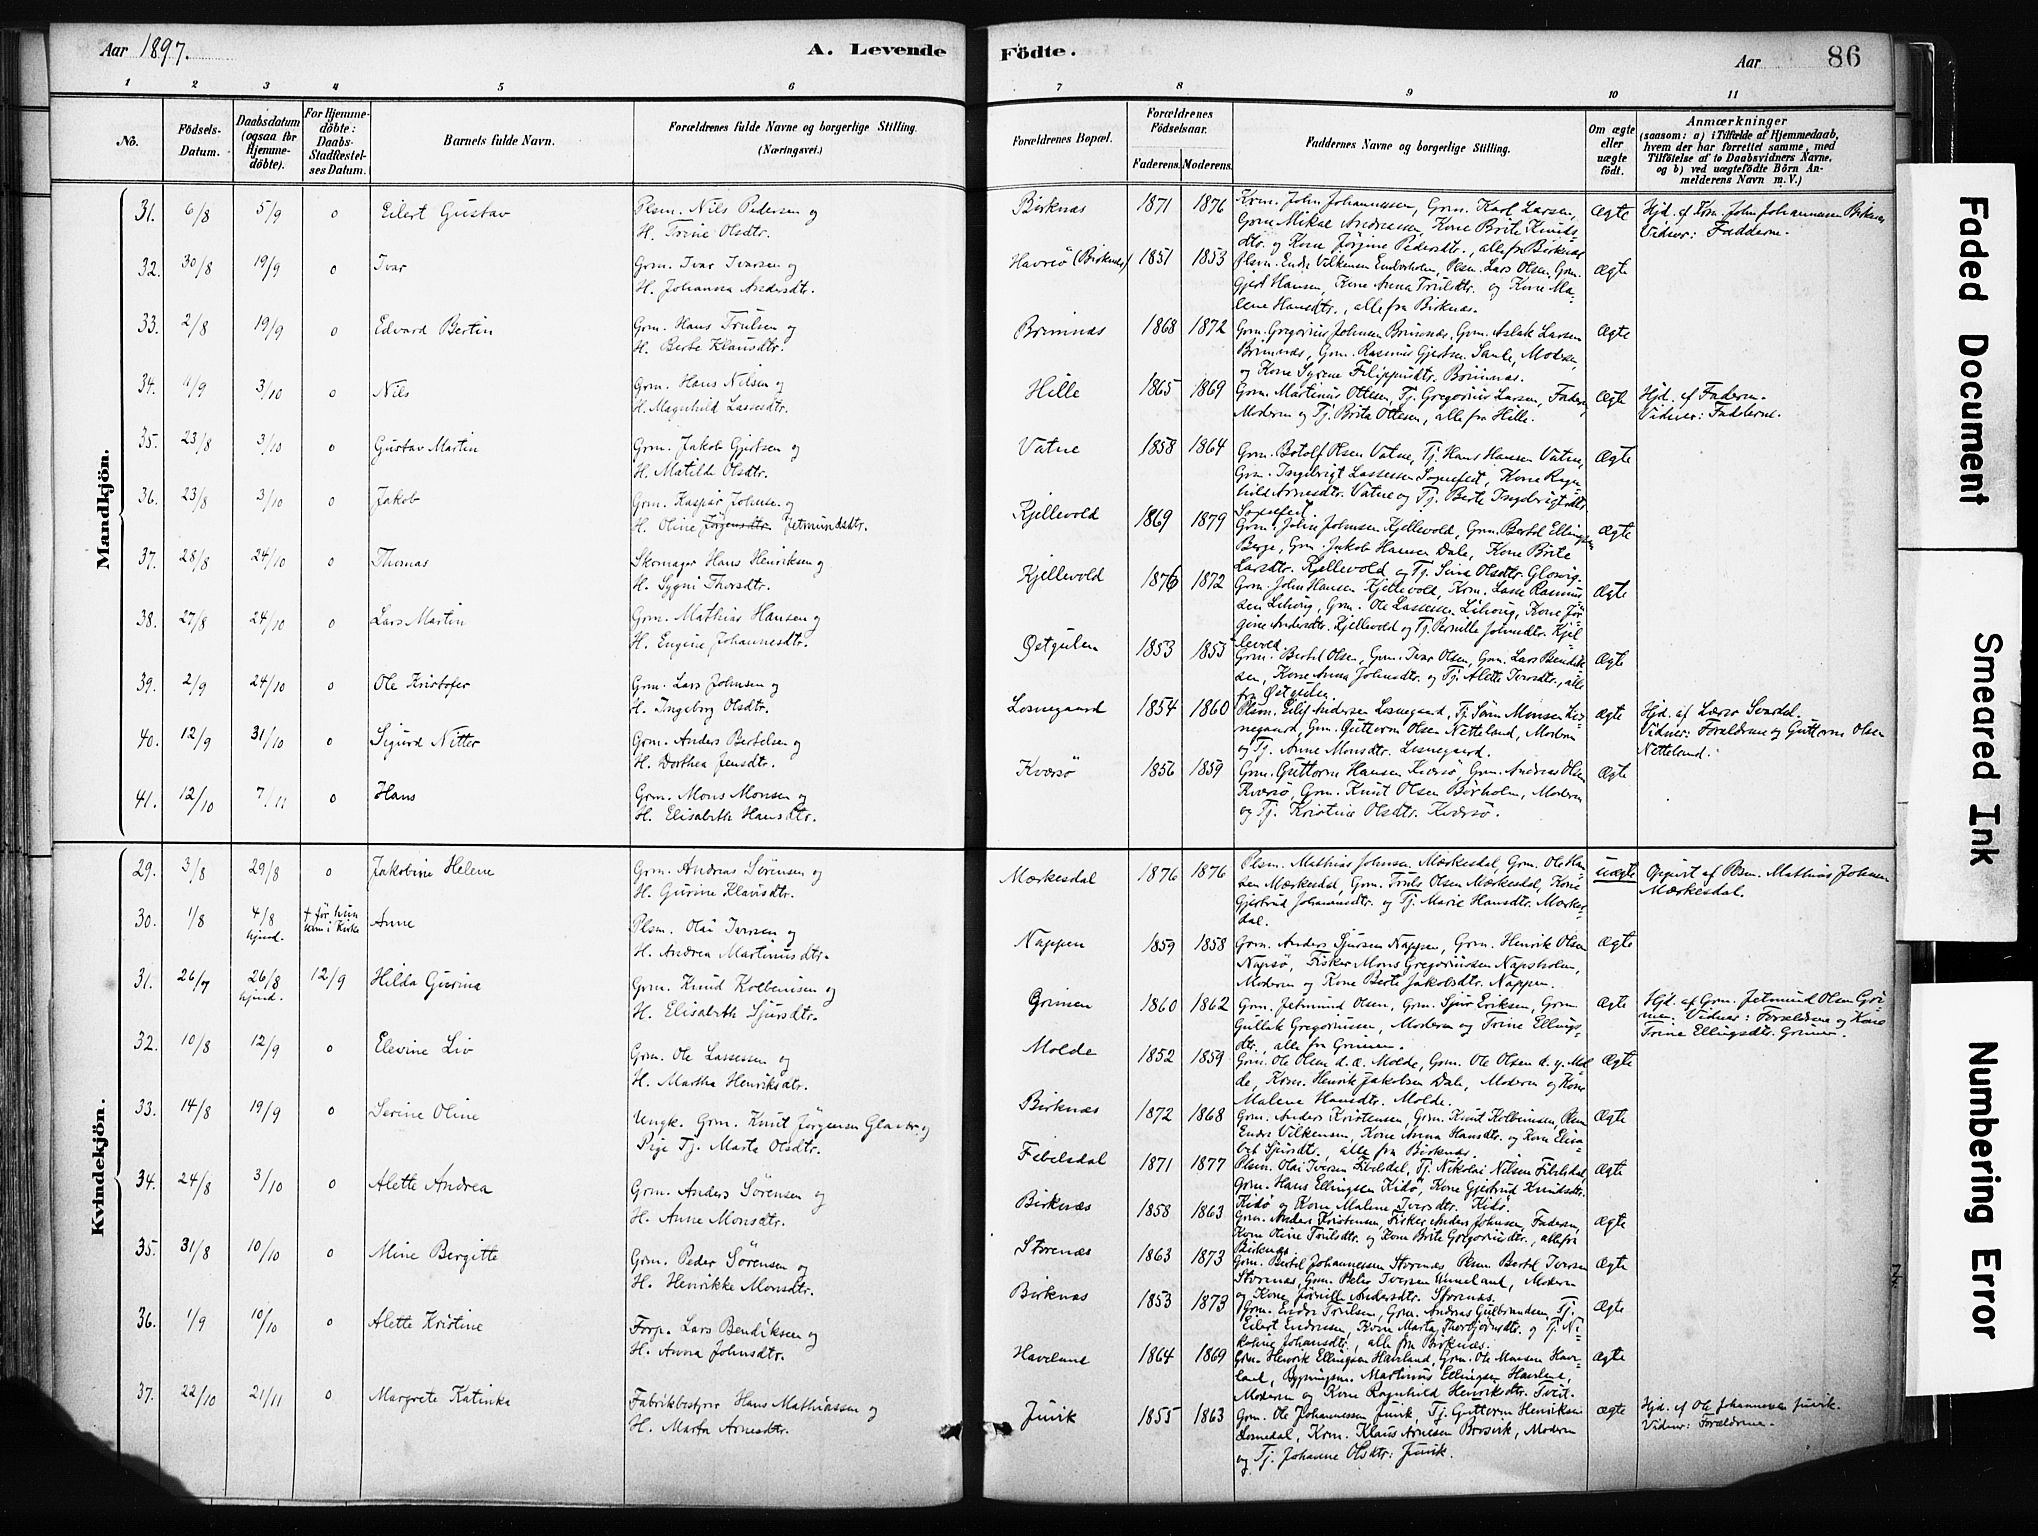 Aar 1897.
A. Levende
Födte.
Aar
86
1 2 3 4 5 6 7 8 9 10 11
No.
Födsels-Datum.
Daabsdatum (ogsaa for Hjemme-döbte).
For Hjemme-döbte: Daabs-Stadfæstel-ses Datum.
Barnets fulde Navn.
Forældrenes fulde Navne og borgerlige Stilling.
(Næringsvei.)
Forældrenes Bopæl.
Forældrenes Födselsaar.
Faderens. Moderens.
Faddernes Navne og borgerlige Stilling.
Om ægte eller uægte födt.
Anmærkninger
(saasom: a) i Tilfælde af Hjemmedaab, hvem der har forrettet samme, med Tilföielse af to Daabsvidners Navne, og b) ved uægtefödte Börn An-melderens Navn m. V.)
Mandkjön.
31. 6/8 5/9 0 Eilert Gustav
Plsm. Nils Pedersen og
H. Trine Olsdtr.
32. 30/8 19/9 0 Ivar
Grm. Ivar Ivarsen og
H. Johanna Andersdtr.
33. 2/8 19/9 0 Edvard Bertin
Grm. Hans Trulsen og
H. Berte Klausdtr.
34. 4/9 3/10 0 Nils
Grm. Hans Nilsen og
H. Magnhild Lassesdtr.
35. 23/8 3/10 0 Gustav Martin
Grm. Jakob Gjertsen og
H. Matilde Olsdtr.
36. 23/8 3/10 0 Jakob
Grm. Kaspar Johnsen og
H. Oline Jörgensdtr. Jetmundsdtr.
37. 28/8 24/10 0 Thomas
Skomager Hans Henriksen og
H. Sygni Thorsdtr.
38. 27/8 24/10 0 Lars Martin
Grm. Mathias Hansen og
H. Eugine Johannesdtr.
39. 2/9 24/10 0 Ole Kristofer
Grm. Lars Johnsen og
H. Ingeborg Olsdtr.
40. 12/9 31/10 0 Sigurd Nitter
Grm. Anders Bertelsen og
H. Dorthea Jensdtr.
41. 12/10 7/11 0 Hans
Grm. Mons Monsen og
H. Elisabeth Hansdtr.
Kvindekjön.
29. 3/8 29/8 0 Jakobine Helene
Grm. Andreas Sörensen og
H. Gurine Klausdtr.
30. 1/8 4/8 hjmd. † før hun kom i Kirke Anne
Plsm. Olai Iversen og
H. Andrea Martinusdtr.
31. 26/7 26/8 hjmd. 12/9 Hilda Gurina
Grm. Knud Kolbeinsen og
H. Elisabeth Sjursdtr.
32. 10/8 12/9 0 Elevine Liv
Grm. Ole Lassesen og
H. Martha Henriksdtr.
33. 14/8 19/9 0 Serine Oline
Ungk. Grm. Knut Jörgensen Glavær og
Pige Tj. Marta Olsdtr.
34. 24/8 3/10 0 Alette Andrea
Grm. Anders Sörensen og
H. Anne Monsdtr.
35. 31/8 10/10 0 Mine Bergitte
Grm. Peder Sörensen og
H. Henrikke Monsdtr.
36. 1/9 10/10 0 Alette Kristine
Forp. Lars Bendiksen og
H. Anna Johnsdtr.
37. 22/10 21/11 0 Margrete Katinka
Fabrikbestyrer Hans Mathiassen og
H. Marta Arnesdtr.
Birknæs 1871 1876
Krm. John Johannessen, Grm. Karl Larsen,
Grm Mikal Andreassen, Kone Brite Knuds
dtr. og Kone Jörgine Pedersdtr., alle fra Birknæs
Ægte
Hjd. af Krm. John Johannessen Birknæs
Vidner: Fadderne.
Havrsö (Birknæs) 1851 1853
Plsm. Endre Vilkensen Enderholm, Plsm. Lars Olsen, Grm.
Gjert Hansen, Kone Anna Trulsdtr. og Kone Ma-
lene Hansdtr., alle fra Birknæs.
Ægte
Brimnæs 1868 1872
Grm. Gregorius Johnsen Brimnæs, Grm. Aslak Larsen
Brimnæs, Grm. Rasmus Gjertsen Saule, Moderen,
og Kone Syrene Filippusdtr. Brimnæs.
Ægte
Hille 1865 1869
Grm. Martinus Ottesen, Tj. Gregorius Larsen, Faderen,
Moderen og Tj. Brita Ottesen, alle fra Hille.
Ægte
Hjd. af Faderen.
Vidner: Fadderne.
Vatne 1858 1864
Grm. Botolf Olsen Vatne, Tj. Hans Hansen Vatne,
Grm. Ingebrigt Lassesen Sognefest, Kone Ragn
hild Arnesdtr. Vatne og Tj. Berte Ingebrigtsdtr.
Sognefest
Ægte
Kjellevold 1869 1879
Grm. John Johnsen Kjellevold, Grm. Bertel Ellingsen
Berge, Grm. Jakob Hansen Dale, Kone Brite
Larsdtr. Kjellevold og Tj. Sine Olsdtr. Glosvig.
Ægte
Kjellevold 1876 1872
Grm. John Hansen Kjellevold, Krm. Lasse Rasmus
sen Lihoug, Grm. Ole Lassesen Lihoug, Kone Jör
gine Andersdtr. Kjellevold og Tj. Pernille Johnsdtr. Kjel
levold.
Ægte
Østgulen 1853 1855
Grm. Bertel Olsen, Grm. Ivar Olsen, Grm. Lars Bendik
sen, Kone Anna Johnsdtr. og Tj. Alette Iversdtr., alle
fra Østgulen.
Ægte
Losnegaard 1854 1860
Plsm. Eilif Andersen Losnegaard, Tj. Sören Monsen Los
negaard, Grm. Guttorm Olsen Netteland, Moderen
og Tj. Anne Monsdtr. Losnegaard.
Ægte
Hjd. af Lærer Svardal.
Vidner: Forældrene og Guttorm Olsen
Netteland.
Kversö 1856 1859
Grm. Guttorm Hansen Kversö, Grm. Andreas Olsen
Kversö, Grm. Knut Olsen Birholm, Moderen
og Tj. Kristine Olsdtr. Kversö.
Ægte
Mærkesdal 1876 1876
Plsm. Mathias Johnsen Mærkesdal, Grm. Ole Han-
sen Mærkesdal, Grm. Truls Olsen Mærkesdal, Kone
Gjertrud Johannesdtr. og Tj. Marie Hansdtr. Mærkes-
dal.
uægte
Opgivet af Plsm. Mathias Johnsen
Mærkesdal.
Nappen 1859 1858
Grm. Anders Sjursen Nappen, Grm. Henrik Olsen
Napsö, Fisker Mons Gregoriussen Napsholm,
Moderen og Kone Berte Jakobsdtr. Nappen.
Ægte
Grimen 1860 1862
Grm. Jetmund Olsen, Grm. Sjur Eriksen, Grm.
Gullak Gregoriussen, Moderen og Trine Ellings-
dtr., alle fra Grimen.
Ægte
Hjd. af Grm. Jetmund Olsen Gri
men. Vidner: Forældrene og Kone
Trine Ellingsdtr. Grimen.
Molde 1852 1859
Grm. Ole Olsen d. æ. Molde, Grm. Ole Olsen d. y. Mol
de, Krm. Henrik Jakobsen Dale, Moderen og Kone
Malene Hansdtr. Molde.
Ægte
Birknæs 1872 1868
Grm. Anders Kristensen, Grm. Knut Kolbeinsen, Plsm
Endre Vilkensen, Kone Anna Hansdtr. og Kone Elisa
bet Sjursdtr., alle fra Birknæs.
Ægte
Fibelsdal 1871 1877
Plsm. Olai Iversen Fibelsdal, Tj. Nikolai Nilsen Fibelsdal,
Grm. Hans Ellingsen Kidö, Kone Gjertrud Knudsdtr.
Kidö og Kone Malene Iversdtr. Kidö.
Ægte
Birknæs 1858 1863
Grm. Anders Kristensen, Fisker Anders Johnsen, Faderen,
Kone Oline Trulsdtr. og Kone Brite Gregoriusdtr., alle fra
Birknæs.
Ægte
Storenæs 1863 1873
Grm. Bertel Johannessen Storenæs Plsm Bertel Iversen
Storenæs, Grm. Peter Iversen Unneland, Moderen
og Kone Jörnille Andersdtr. Storenæs.
Ægte
Birknæs 1853 1873
Grm. Endre Trulsen, Grm. Andreas Gulbrandsen, Tj.
Eilert Endresen, Kone Marta Thorbjörnsdtr. og Tj. Ni-
koline Johansdtr., alle fra Birknæs.
Ægte
Haveland 1864 1869
Grm. Henrik Ellingsen Haveland, Grm. Ole Monsen Have-
land, Bygningsm. Martinus Ellingsen Haveland,
Moderen og Kone Ragnhild Henriksdtr. Tveit.
Ægte
Juvik 1855 1863
Grm. Ole Johannessen Juvik, Tj. Guttorm Henriksen
Losnedal, Krm. Klaus Arnesen Brosvik, Moderen
og Tj. Johanne Olsdtr. Juvik.
ægte
Hjd. af Ole Johannessen Juvik.
Vidner: Forældrene.
Faded Document
Smeared Ink
Numbering Error